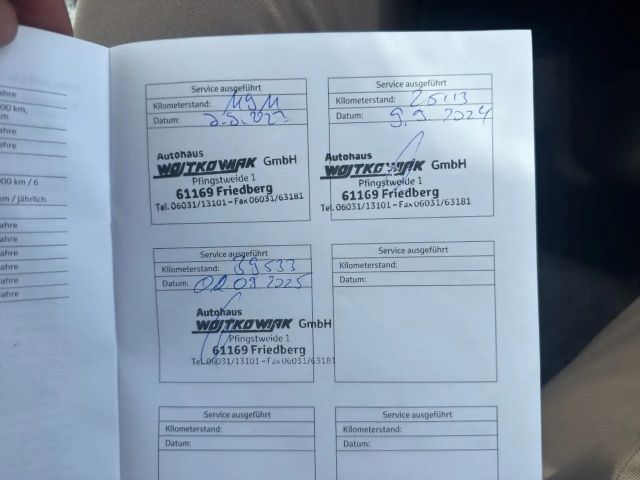 ahre
00 km,
ahre
ahre
00 km / 6
km / jährlich
ahre
ahre
ahre
ahre
ahre
ahre
Service ausgeführt
Kilometerstand:
Datum:
Autohaus
WOJTKOWIAK GmbH
Pfingstweide 1
61169 Friedberg
Tel. 06031/13101 – Fax 06031/63181
Service ausgeführt
Kilometerstand: 25113
Datum: 9.9.2024
Autohaus
WOJTKOWIAK GmbH
Pfingstweide 1
61169 Friedberg
Tel. 06031/13101 – Fax 06031/63181
Service ausgeführt
Kilometerstand: 39533
Datum: 02.09.2025
Autohaus
WOJTKOWIAK GmbH
Pfingstweide 1
61169 Friedberg
Tel. 06031/13101 – Fax 06031/63181
Service ausgeführt
Kilometerstand:
Datum:
Service ausgeführt
Kilometerstand:
Datum:
Service ausgeführt
Kilometerstand:
Datum: